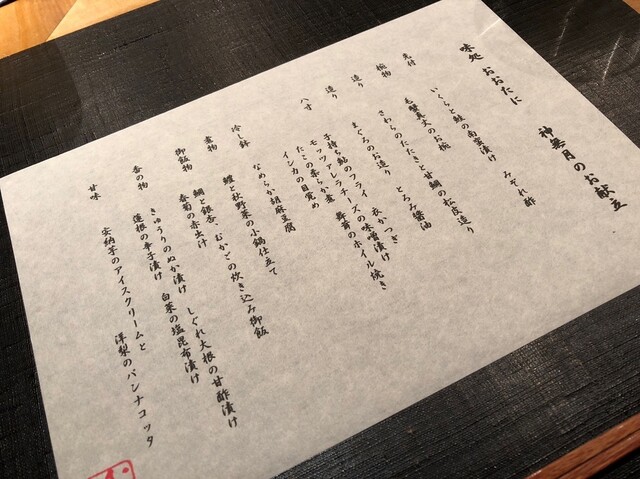 味処 おおたに
神無月のお献立
先付 いくらと鮭の南蛮漬け みぞれ酢
椀物 毛蟹真丈のお椀
造り さわらのたたきと甘鯛の松皮造り とろみ醤油
造り まぐろのお造り
八寸 子持ち鮎のフライ 衣かつぎ
モッツァレラチーズの味噌漬け
たこの柔らか煮 舞茸のホイル焼き
インカの目覚め
冷し鉢 なめらか胡麻豆腐
煮物 鱧と秋野菜の小鍋仕立て
御飯物 鯛と銀杏、むかごの炊き込み御飯
春菊の赤出汁
香の物 きゅうりのぬか漬け しぐれ大根の甘酢漬け
蓮根の辛子漬け 白菜の塩昆布漬け
甘味 安納芋のアイスクリームと
洋梨のパンナコッタ